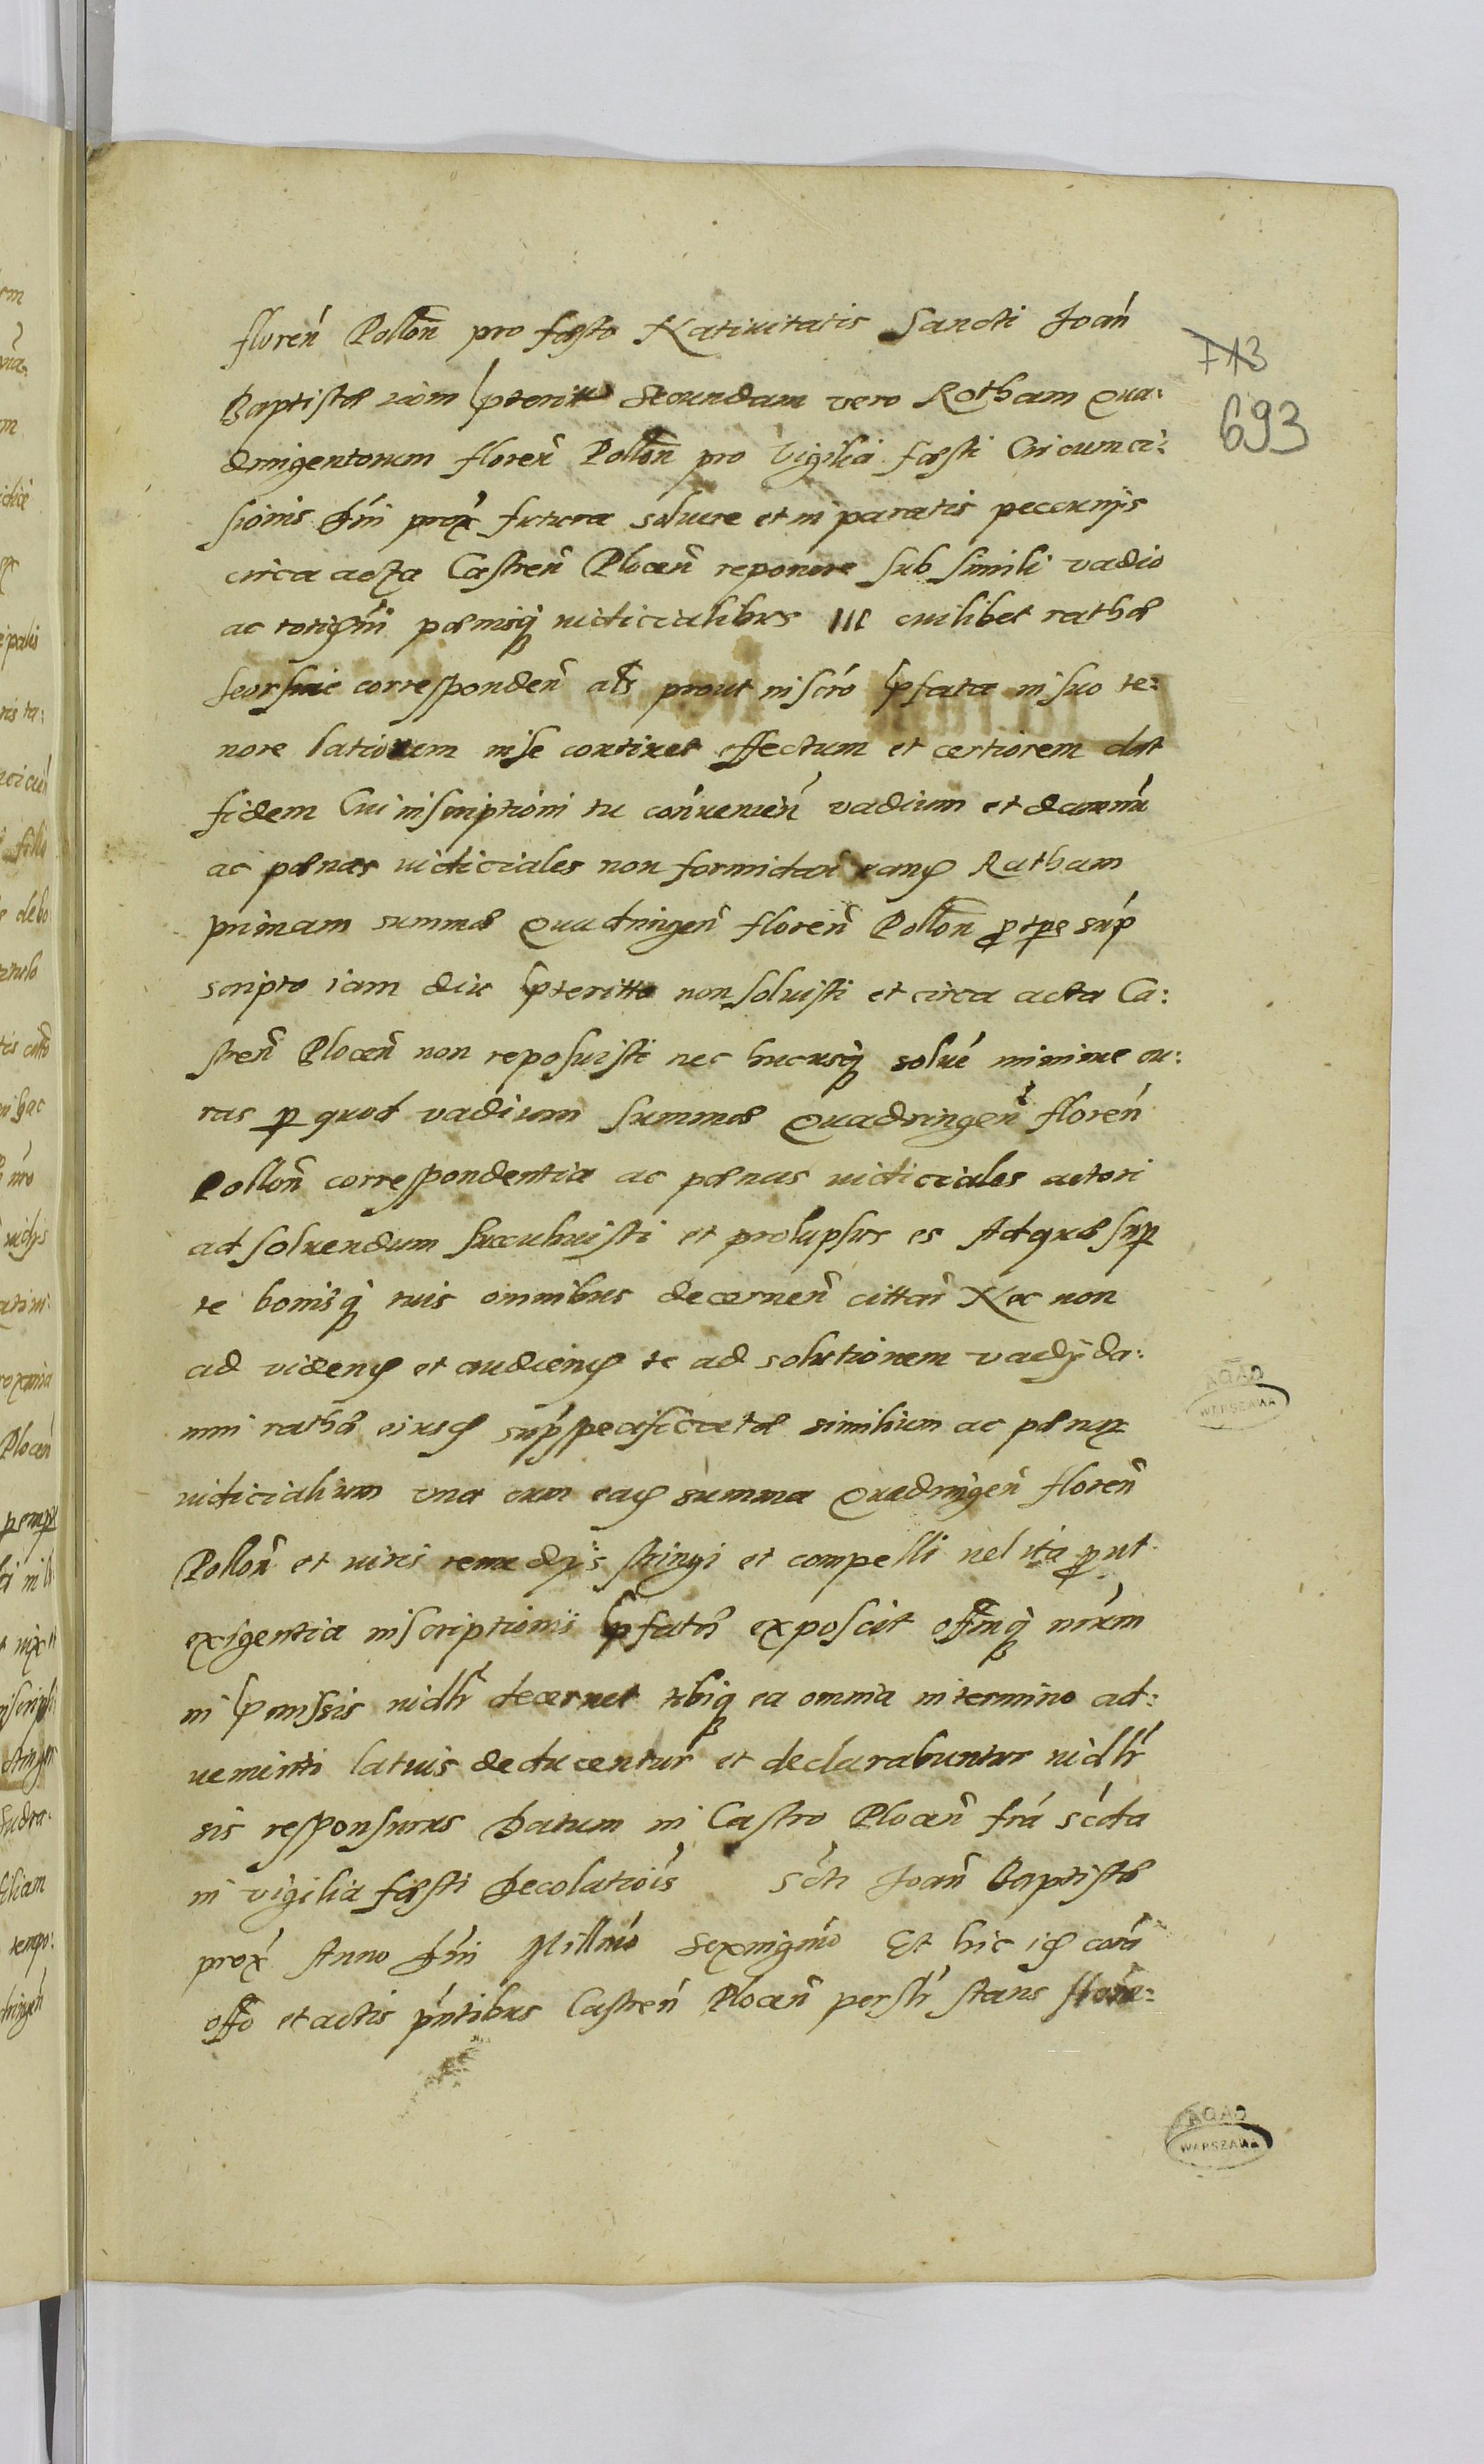 floreń Pollon̄ pro fęsto Natiuitatis Sancti Joań
Baptistę iam pterito Secundam vero Ratham Qua:
dringentorum floreń Pollon̄ pro Vigilia fęsti Circumci:
sionis Dńi prox̄ futura soluere et in paratis pecunijs
circa acta Castreń Ploceń reponere sub simili vadio
ac pęnisq́ iudicialibus cuilibet rathę
seorsiue correspondeń als prout inscró pfata in suo te:
nore latiorem in se continet effectum et certiorem dat
fidem Cui inscriptioni tu conúenień vadium et damna
ac pęnas iudiciales non formidań Ratham
primam summę Quadringeń floreń Pollon̄ p tpe sup
scripto iam diu pteritto non soluisti et circa acta Ca:
streń Ploceń non reposuisti nec hucusq́ solué minime cu:
ras p quod vadium summę Quadringeń floreń
Pollon̄ correspondentia ac pęnas iudiciales actori
ad soluendum succubuisti et prolapsus es Ad quę sup
te bonisq́ tuis omnibus decerneń cittań Nec non
ad videnđ et audienđ te ad solutionem vadÿ da:
mni rathę eiusđ supspecificatę similium ac pęnaꝝ
iudicialium vna cum eađ summa Quadringeń floreń
Pollon̄ et iuris remedÿs stringi et compelli uel ita put
exigentia inscriptionis pfatę exposcit offmq́ nr̄um
in pmissis iudlr decernet tibiq́ ea omnia in termino ad:
uenienti latius deducentur et declarabuntur iudlr
sis responsurus Datum in Castro Ploceń fŕia scda
in vigilia fęsti Decolatiois Scti Joań Baptistę
prox́ Anno Dńi Millmó Sexingmó Et hic iđ corá
offo et actis pńtibus Castreń Ploceń perslr stans
713
693
AGAD
WARSZAWA
AGAD
WARSZAWA